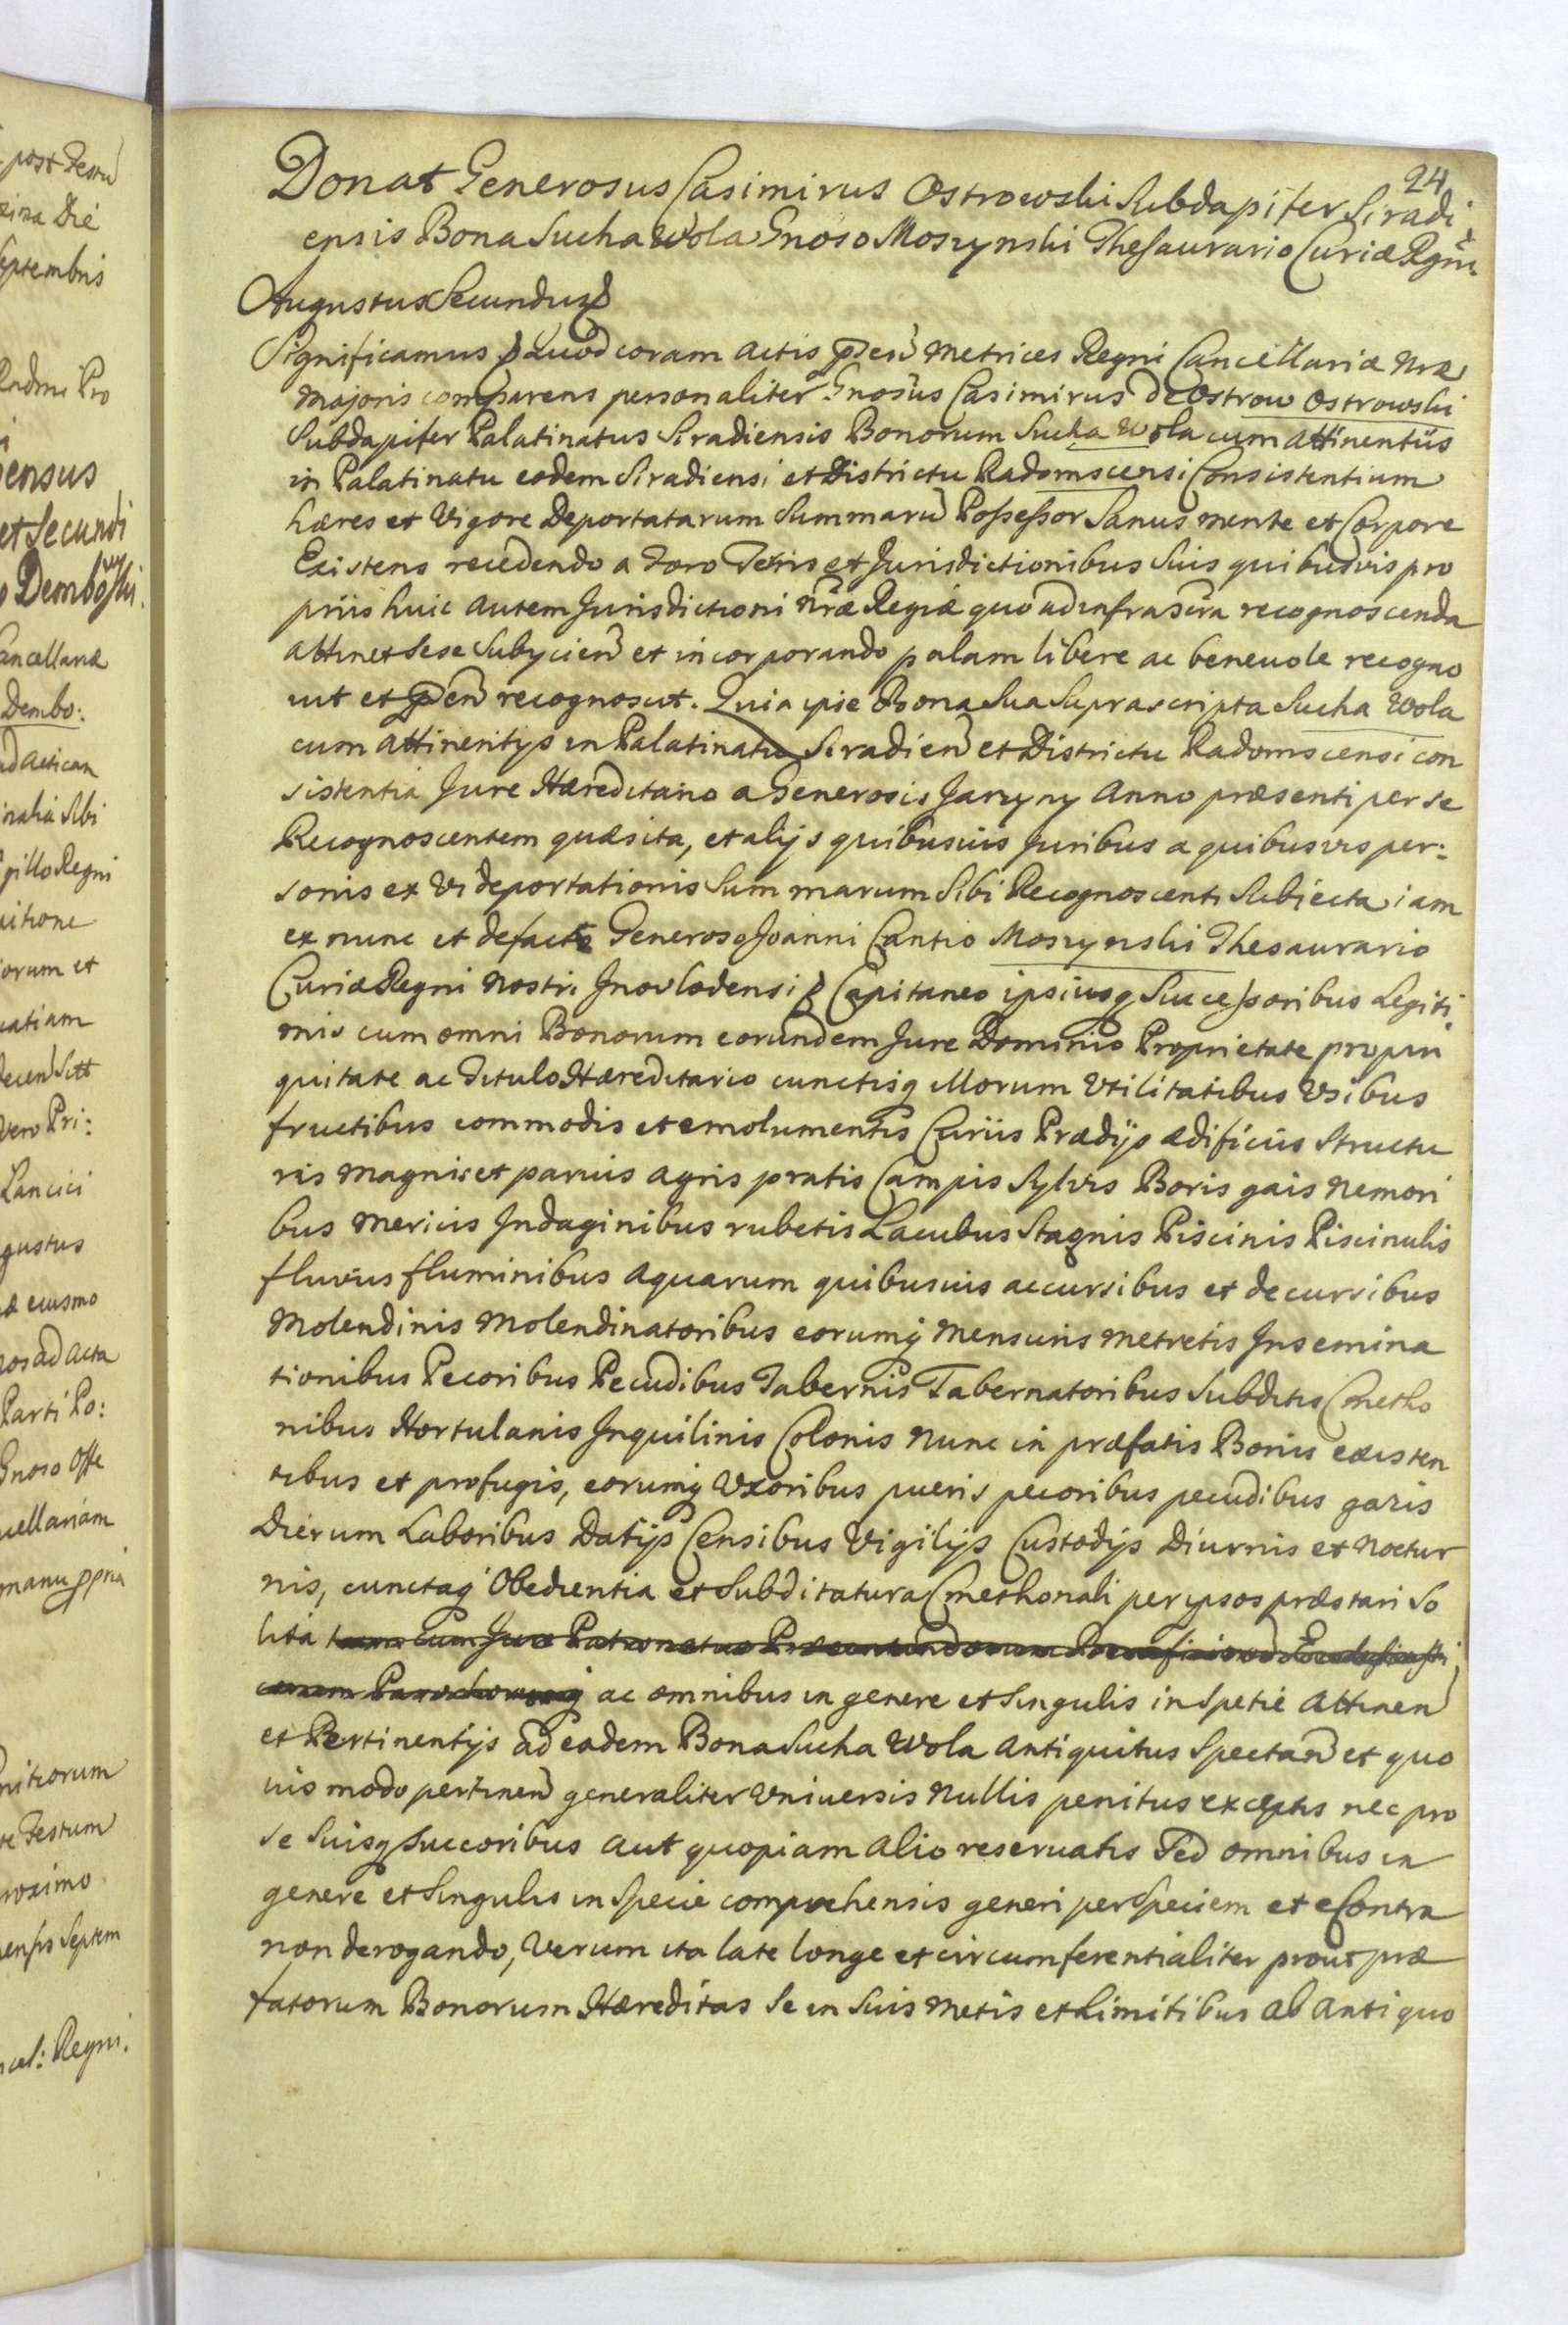 24
Donat Generosus Casimirus Ostrowski Subdapifer Siradi
ensis Bona Sucha Wola Gnoso Moszynski Thesaurario Curiæ Regni
Augustus Secundus
Significamus Quod coram Actis præsen Metrices Regni Cancellariæ Nræ
Majoris comparens personaliter Gnosus Casimirus de Ostrow Ostrowski
Subdapifer Palatinatus Siradiensis Bonorum Sucha Wola cum attinentiis
in Palatinatu eodem Siradiensi et Districtu Radomscensi Consistentium
hæres et Vigore Deportatarum Summaru Possessor Sanus mente et Corpore
Existens recedendo a Foro Terris et Jurisdictionibus Suis quibusvis pro
priis huic autem Jurisdictioni Nræ Regiæ quo ad infrascra recognoscenda
attinet sese Subycien et incorporando palam libere ac beneuole recogno
uit et præsen recognoscit. Quia ipse Bona Sua Suprascripta Sucha Wola
cum attinentijs in Palatinatu Siradien et Districtu Radomscensi con
sistentia Jure Hæreditario a Generosis Jarzyny Anno præsenti per se
Recognoscentem quæsita, et alijs quibusuis Juribus a quibusvis per:
sonis ex Vi deportationis Summarum Sibi Recognoscenti Subiecta iam
ex nunc et de facto Generoso Joanni Cantio Moszynski Thesaurario
Curiæ Regni Nostri Inovlodensi Capitaneo ipsiusq Successoribus Legiti
mis cum omni Bonorum eorundem Jure Dominio Proprietate propin
quitate ac Titulo Hæreditario cunctisq illorum Vtilitatibus Vsibus
fructibus commodis et emolumentis Curiis Prædijs ædificiis Structu
ris Magnis et paruis agris pratis Campis Sylvis Boris gais Nemori
bus Mericis Indaginibus rubetis Lacubus Stagnis Piscinis Piscinulis
fluviis fluminibus Aquarum quibusuis accursibus et decursibus
Molendinis Molendinatoribus eorumq Mensuris Metretis Insemina
tionibus Pecoribus Pecudibus Tabernis Tabernatoribus Subditis Cmetho
nibus Hortulanis Inquilinis Colonis Nunc in præfatis Bonis existen
tibus et profugis, eorumq Vxoribus pueris pecoribus pecudibus gazis
Dierum Laboribus Datijs Censibus Vigilijs Custodijs Diurnis et Noctur
nis, cunctaq Obedientia et Subditatura Cmethonali per ipsos præstari So
lita cum Jure Patronatus Præsentandorum Beneficiorud Ecclesiasti
corum Parochorumq ac omnibus in genere et Singulis in Spetie Attinen
et Pertinentijs ad eadem Bona Sucha Wola antiquitus Spectan et quo
uis modo pertinen generaliter Vniuersis Nullis penitus exceptis nec pro
se Suisq Succoribus aut quopiam alio reseruatis Sed omnibus in
genere et Singulis in Specie comprehensis generi per Speciem et e Contra
non derogando, Verum ita late longe et circumferentialiter prout præ
fatorum Bonorum Hæreditas Se in Suis Metis et Limitibus ab Antiquo
post Festu
Die
Septembris
Radmi Pro
ensus
et Secundi
Dembowski
Cancellariæ
Dembo:
Sibi
Regni
orum et
Pri:
Lancici
gustus
eiusmo
ad acta
Parti Po:
Gnoso Offe
cellariam
manu ppria
Festum
roximo
ensis Septem
cel: Regni.